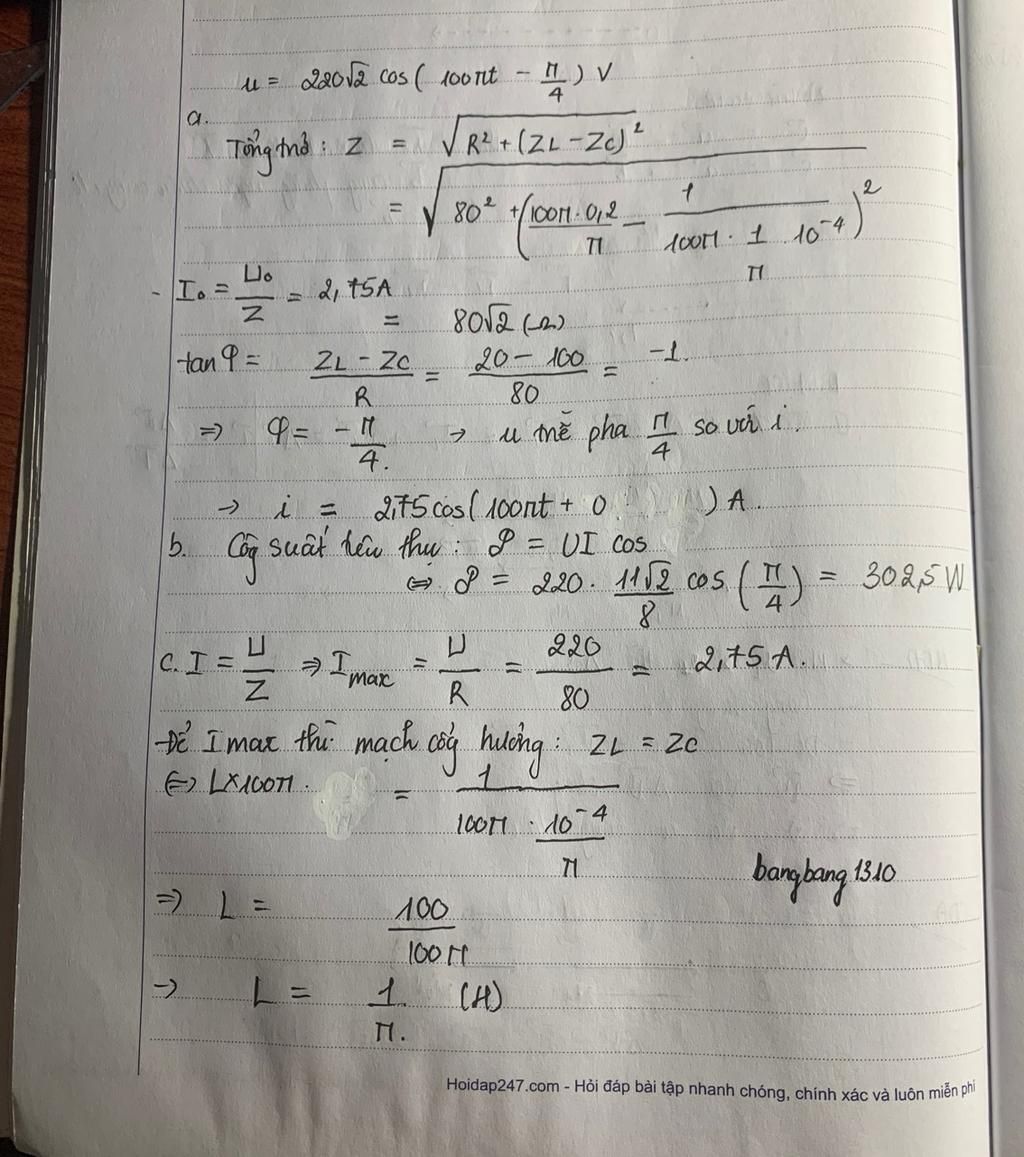 u = 220√2 cos( 100πt - π/4 ) V
a.
Tổng trở : Z = √R² + (ZL - ZC)²
= √80² + (100π. 0,2/π - 1/(100π. 1/π 10⁻⁴))²
- I₀ = U₀/Z = 2,75A
= 80√2 (Ω)
tan φ = (ZL - ZC)/R = (20 - 100)/80 = -1.
⇒ φ = -π/4. → u trễ pha π/4 so với i.
→ i = 2,75 cos( 100πt + 0 ) A.
b. Công suất tiêu thụ : P = UI cos
⇔ P = 220. 11√2/8 cos (π/4) = 302,5 W
c. I = U/Z ⇒ I max = U/R = 220/80 = 2,75 A.
-Để I max thì mạch cộng hưởng : ZL = ZC
⇔ L×100π. = 1/(100π . 10⁻⁴/π)
bangbang1310
⇒ L = 100/100π
→ L = 1/π. (H)
Hoidap247.com - Hỏi đáp bài tập nhanh chóng, chính xác và luôn miễn phí